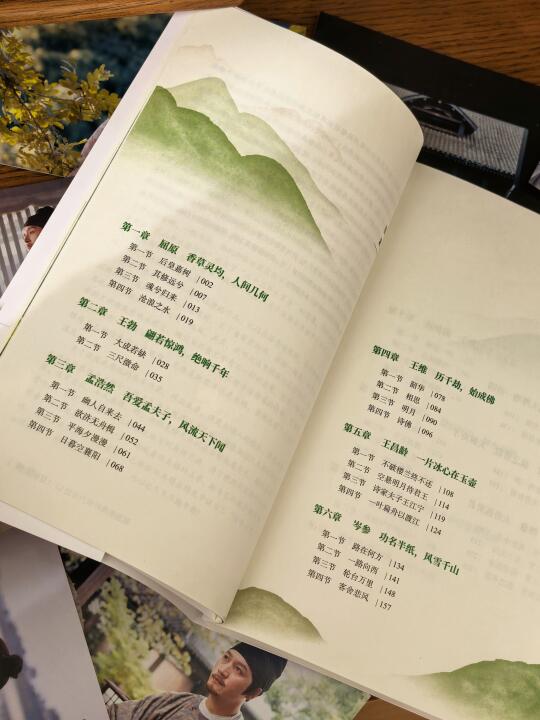 第一章 屈原 香草灵均，人间几何
第一节 后皇嘉树 | 002
第二节 其修远兮 | 007
第三节 魂兮归来 | 013
第四节 沧浪之水 | 019
第二章 王勃 翩若惊鸿，绝响千年
第一节 大成若缺 | 028
第二节 三尺微命 | 035
第三章 孟浩然 吾爱孟夫子，风流天下闻
第一节 幽人自来去 | 044
第二节 欲济无舟楫 | 052
第三节 平海夕漫漫 | 061
第四节 日暮空襄阳 | 068
第四章 王维 历千劫，始成佛
第一节 韶华 | 078
第二节 相思 | 084
第三节 明月 | 090
第四节 诗佛 | 096
第五章 王昌龄 一片冰心在玉壶
第一节 不破楼兰终不还 | 108
第二节 空悬明月待君王 | 114
第三节 诗家夫子王江宁 | 119
第四节 一叶扁舟以渡江 | 124
第六章 岑参 功名半纸，风雪千山
第一节 路在何方 | 134
第二节 一路向西 | 141
第三节 轮台万里 | 148
第四节 客舍悲风 | 157